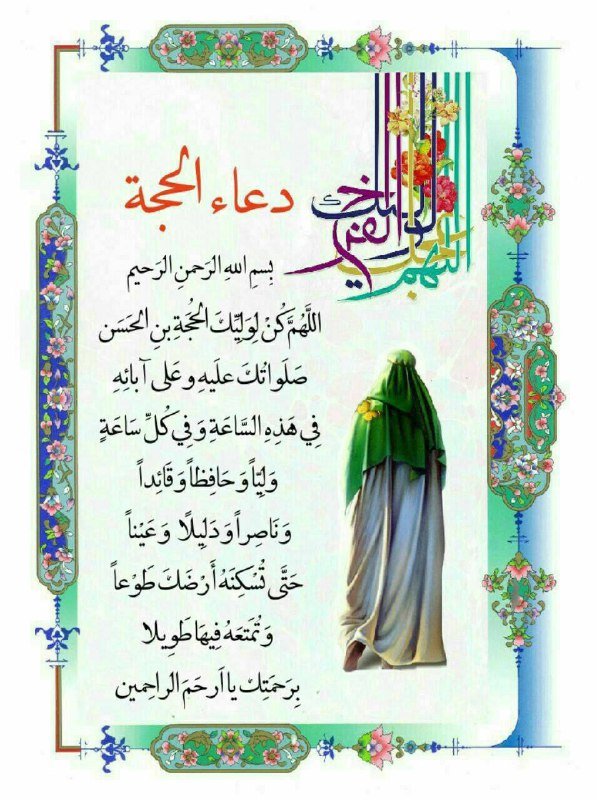 دعاء الحجة
اللهم عجل لوليك الفرج
بِسمِ اللهِ الرَحمنِ الرَحيم
اللَّهُمَّ كُنْ لِوَلِيِّكَ الحُجَةِ بنِ الحَسَن
صَلَواتُكَ علَيهِ و عَلى آبائِهِ
فِي هَذِهِ السَّاعَةِ وَ فِي كُلِّ سَاعَةٍ
وَلِيّاً وَ حَافِظاً وَ قَائِداً
وَ نَاصِراً وَ دَلِيلًا وَ عَيْناً
حَتَّى تُسْكِنَهُ أَرْضَكَ طَوْعاً
وَ تُمَتِعَهُ فِيهَا طَوِيلا
بِرَحمَتِكَ يا اَرحَمَ الراحِمين